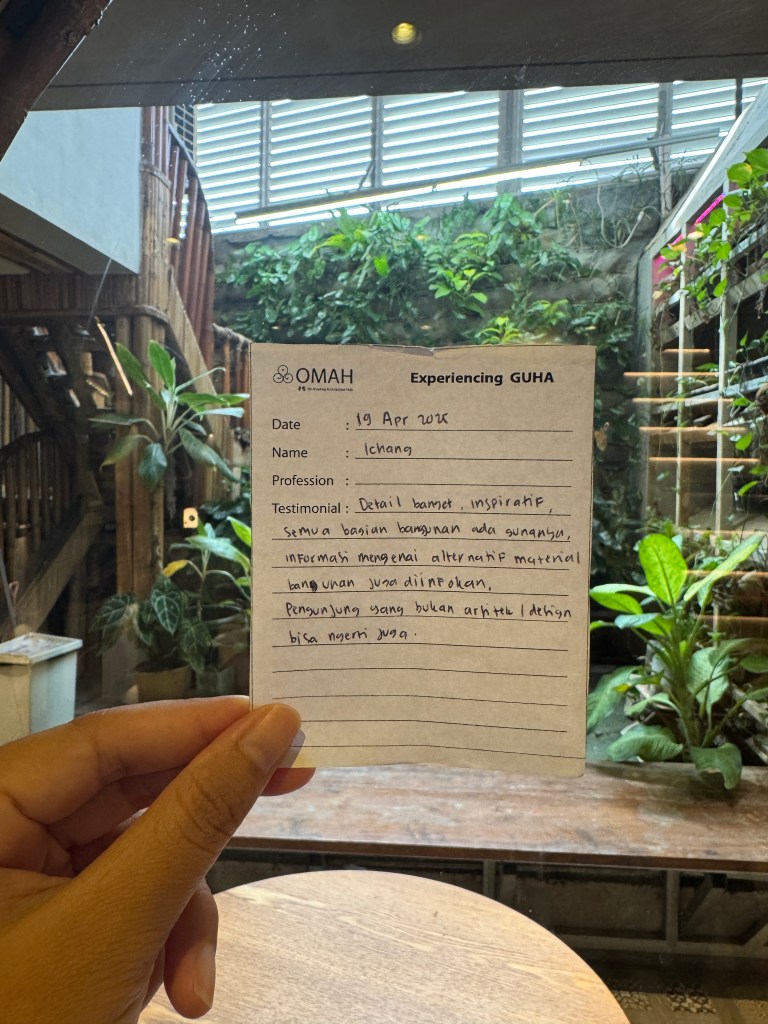 OMAH
Experiencing GUHA
Date : 19 Apr 2025
Name : Ichang
Profession :
Testimonial : Detail banget, inspiratif,
semua bagian bangunan ada gunanya,
informasi mengenai alternatif material
bangunan juga diinfokan.
Pengunjung yang bukan arsitek / design
bisa ngerti juga.